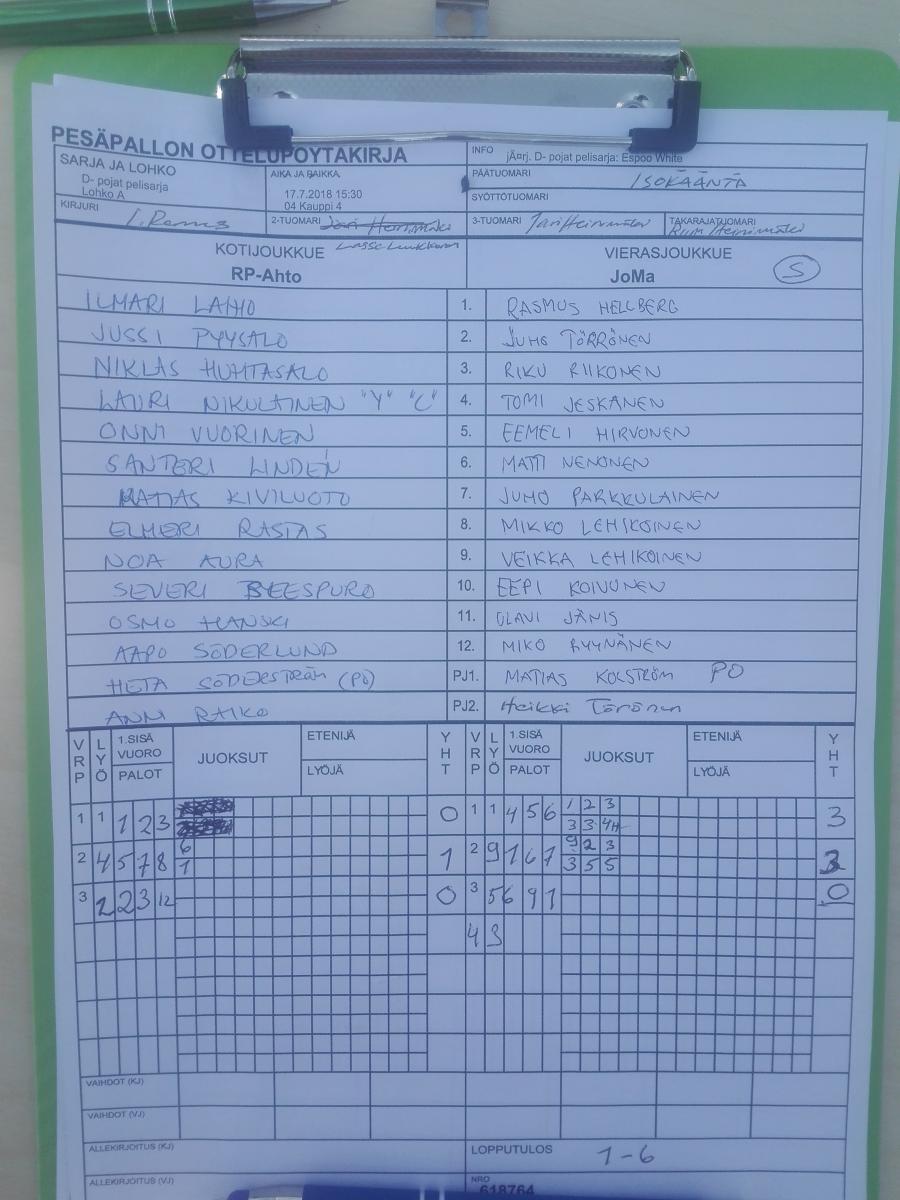 PESÄPALLON OTTELUPÖYTÄKIRJA
INFO jÃ¤rj. D- pojat pelisarja: Espoo White
SARJA JA LOHKO
D- pojat pelisarja
Lohko A
AIKA JA PAIKKA
17.7.2018 15:30
04 Kauppi 4
PÄÄTUOMARI ISOKÄÄNTÄ
SYÖTTÖTUOMARI
KIRJURI
2-TUOMARI
3-TUOMARI
TAKARAJATUOMARI
KOTIJOUKKUE
RP-Ahto
VIERASJOUKKUE
JoMa S
ILMARI LAIHO 1. RASMUS HELLBERG
JUSSI PYYSALO 2. JUHO TÖRRÖNEN
NIKLAS HUHTASALO 3. RIKU RIIKONEN
LAURI NIKULAINEN "Y" "C" 4. TOMI JESKANEN
ONNI VUORINEN 5. EEMELI HIRVONEN
SANTERI LINDÉN 6. MATTI NENONEN
MATIAS KIVILUOTO 7. JUHO PARKKULAINEN
ELMERI RASTAS 8. MIKKO LEHIKOINEN
NOA AURA 9. VEIKKA LEHIKOINEN
SEVERI 10. EEPI KOIVUNEN
OSMO HANSKI 11. OLAVI JÄNIS
AAPO SÖDERLUND 12. MIKO RYYNÄNEN
HETA SÖDERSTRÖM (PÖ) PJ1. MATIAS KOLSTRÖM PÖ
ANNI RAIKO PJ2. Heikki Törönen
VRP LYÖ 1.SISÄ VUORO PALOT JUOKSUT ETENIJÄ LYÖJÄ YHT VRP LYÖ 1.SISÄ VUORO PALOT JUOKSUT ETENIJÄ LYÖJÄ YHT
1 1 1 2 3 0 1 1 4 5 6 1 2 3 3
3 3 4H
2 4 5 7 8 6 1 2 9 1 6 7 9 2 3 3
1 3 5 5
3 2 2 3 12 0 3 5 6 9 1 0
4 3
VAIHDOT (KJ)
VAIHDOT (VJ)
ALLEKIRJOITUS (KJ)
LOPPUTULOS 1-6
ALLEKIRJOITUS (VJ)
NRO
618764